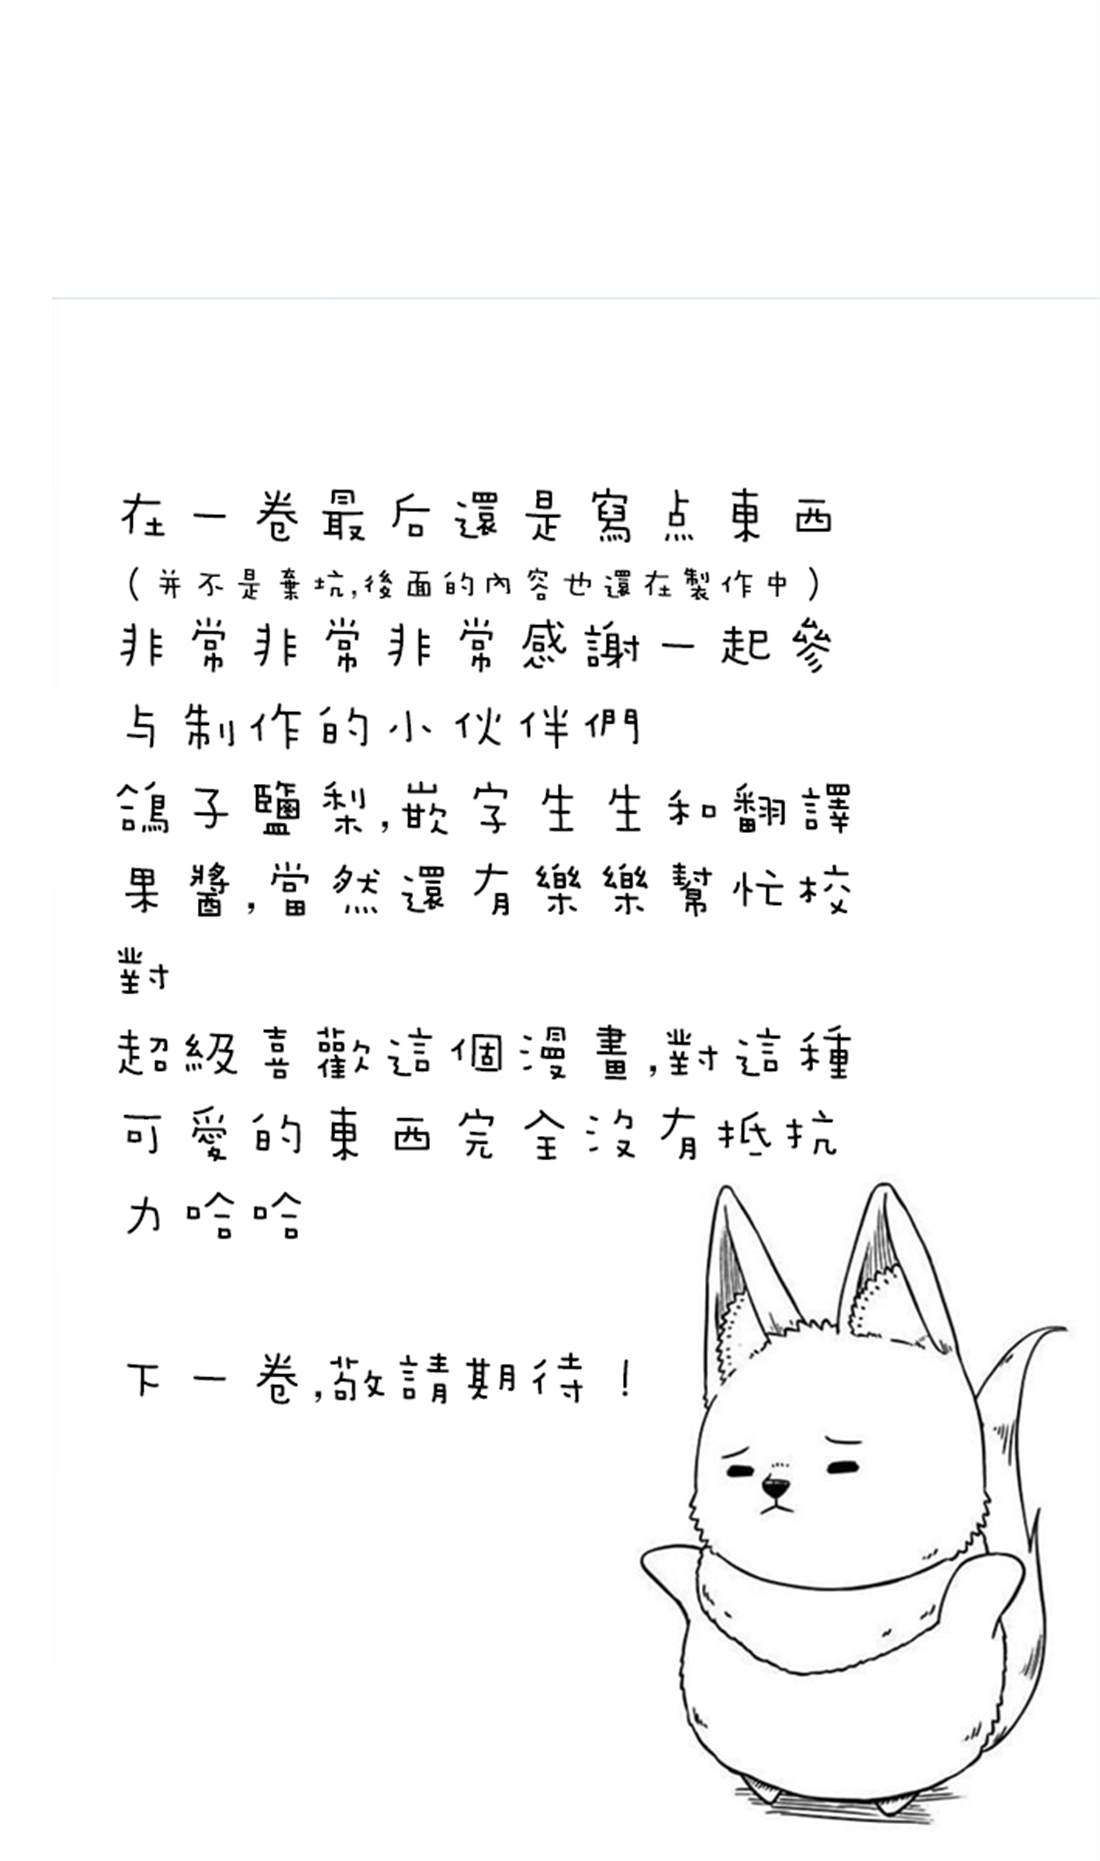 在一卷最后還是寫点東西
（并不是棄坑,後面的內容也還在製作中）
非常非常非常感謝一起參
与制作的小伙伴們
鴿子鹽梨,嵌字生生和翻譯
果醬,當然還有樂樂幫忙校
對
超級喜歡這個漫畫,對這種
可愛的東西完全沒有抵抗
力哈哈
下一卷,敬請期待！